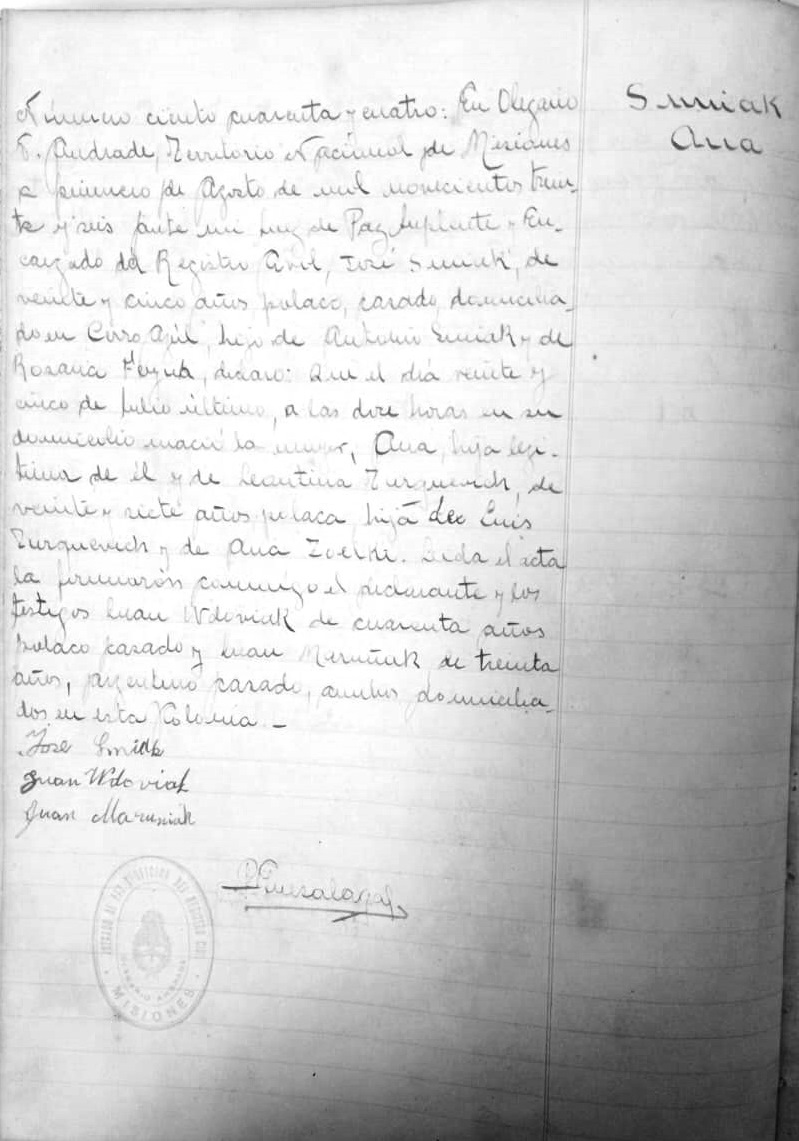 Número ciento cuarenta y cuatro: En Olegario
V. Andrade, Territorio Nacional de Misiones
a primero de Agosto de mil novecientos trein-
ta y seis ante mi Juez de Paz Suplente y En-
cargado del Registro Civil, José Smiak, de
veinte y cinco años polaco, casado, domicilia-
do en Cerro Azul, hijo de Antonio Smiak y de
Rosaria, declaro: Que el día veinte y
cinco de Julio último, a las doce horas en su
domicilio nació la mujer, Ana, hija legi-
tima de él y de Turquevich, de
veinte y siete años polaca hija de Luis
Turquevich y de Ana Zoelki. Leida el acta
la firmarón conmigo el declarante y los
testigos Juan Wdoviak de cuarenta años
polaco casado y Juan Maruñiak de treinta
años, argentino casado, ambos domicilia-
dos en esta Kolonia._
José Smiak
Juan Wdoviak
Juan Marusniak
Smiak
Ana
REGISTRO CIVIL
OLEGARIO ANDRADE
MISIONES